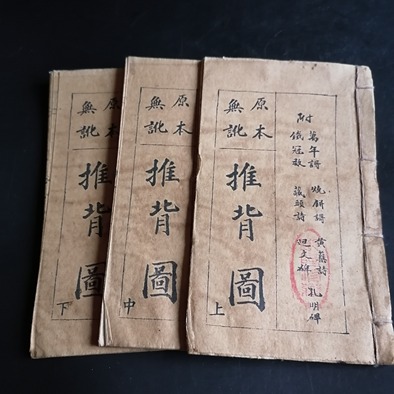 附
萬年譜 燒餅譜 黃蘗詩 孔明碑
藏頭詩
原本
無訛
推背圖
上
原本
無訛
推背圖
中
原本
無訛
推背圖
下